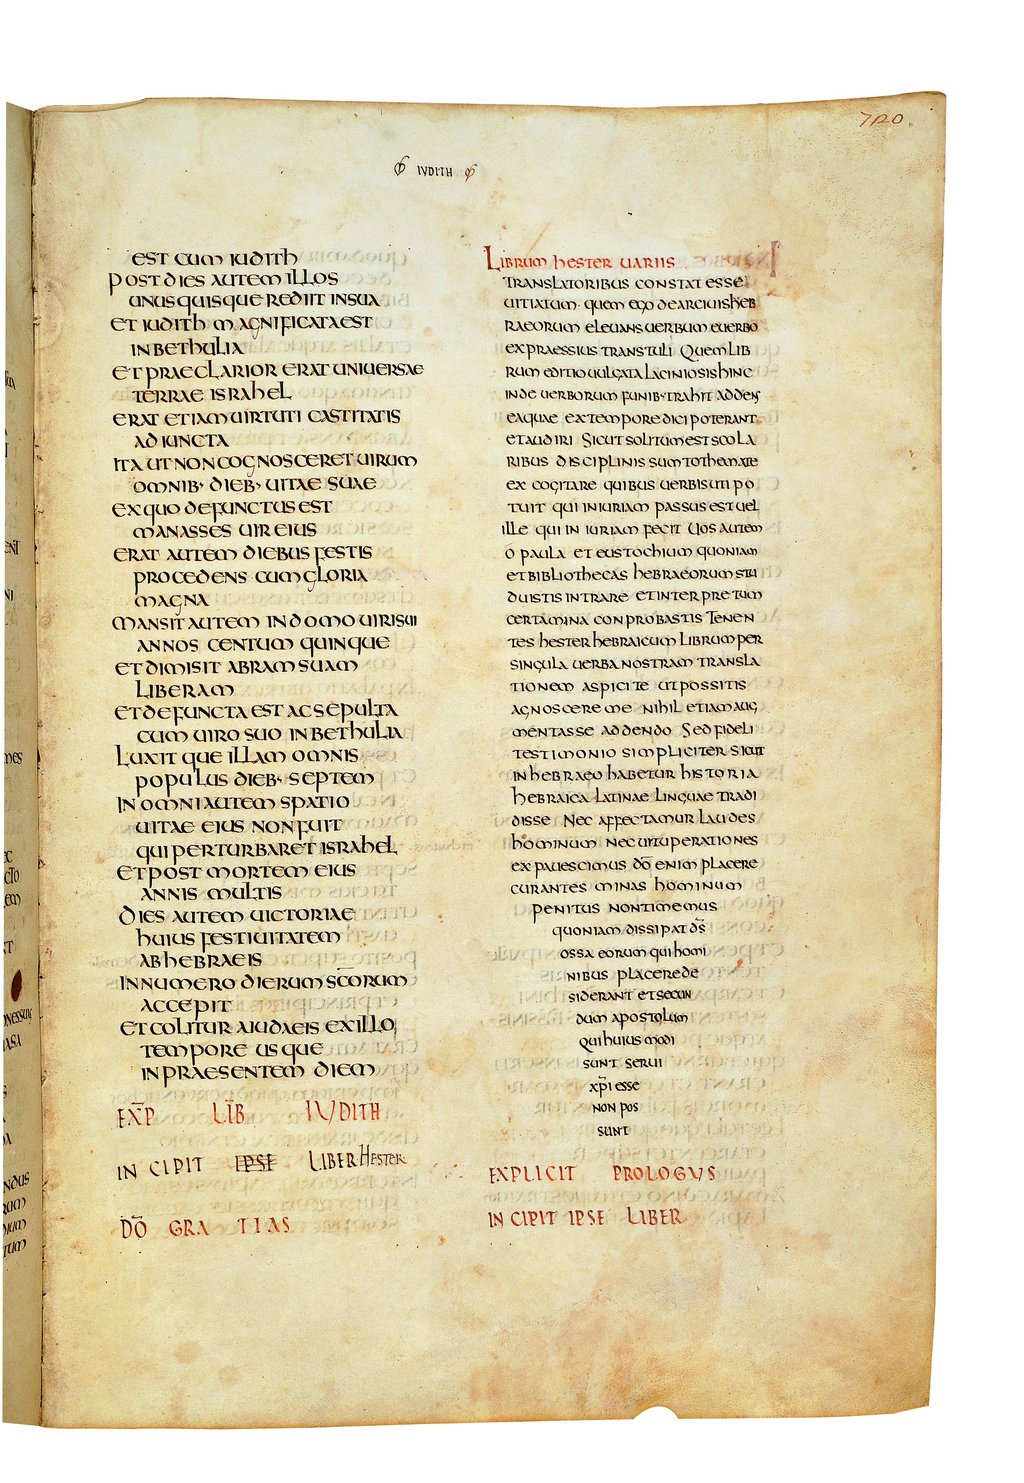 720
IUDITH
EST CUM IUDITH
POST DIES AUTEM ILLOS
UNUSQUISQUE REDIIT IN SUA
ET IUDITH MAGNIFICATA EST
IN BETHULIA
ET PRAECLARIOR ERAT UNIUERSAE
TERRAE ISRAHEL
ERAT ETIAM UIRTUTI CASTITATIS
ADIUNCTA
ITA UT NON COGNOSCERET UIRUM
OMNIB· DIEB· UITAE SUAE
EX QUO DEFUNCTUS EST
MANASSES UIR EIUS
ERAT AUTEM DIEBUS FESTIS
PROCEDENS CUM GLORIA
MAGNA
MANSIT AUTEM IN DOMO UIRI SUI
ANNOS CENTUM QUINQUE
ET DIMISIT ABRAM SUAM
LIBERAM
ET DEFUNCTA EST AC SEPULTA
CUM UIRO SUO IN BETHULIA
LUXITQUE ILLAM OMNIS
POPULUS DIEB· SEPTEM
IN OMNI AUTEM SPATIO
UITAE EIUS NON FUIT
QUI PERTURBARET ISRAHEL
ET POST MORTEM EIUS
ANNIS MULTIS
DIES AUTEM UICTORIAE
HUIUS FESTIUITATEM
AB HEBRAEIS
IN NUMERO DIERUM SC̄ORUM
ACCEPIT
ET COLITUR A IUDAEIS EX ILLO
TEMPORE USQUE
IN PRAESENTEM DIEM
EXP̄ LIB̄ IUDITH
INCIPIT IPSE LIBER HESTER
DŌ GRATIAS
LIBRUM HESTER UARIIS
TRANSLATORIBUS CONSTAT ESSE
UITIATUM· QUEM EGO DE ARCIUIS HEB
RAEORUM ELEUANS UERBUM E UERBO
EXPRAESSIUS TRANSTULI QUEM LIB
RUM EDITIO UULGATA LACINIOSIS HINC
INDE UERBORUM FUNIB· TRAHIT ADDENS
EA QUAE EX TEMPORE DICI POTERANT
ET AUDIRI SICUT SOLITUM EST SCOLA
RIBUS DISCIPLINIS SUMTO THEMATE
EXCOGITARE QUIBUS UERBIS UTI PO
TUIT QUI INIURIAM PASSUS EST UEL
ILLE QUI INIURIAM FECIT UOS AUTEM
O PAULA ET EUSTOCHIUM QUONIAM
ET BIBLIOTHECAS HEBRAEORUM STU
DUISTIS INTRARE ET INTERPRETUM
CERTAMINA CONPROBASTIS TENEN
TES HESTER HEBRAICUM LIBRUM PER
SINGULA UERBA NOSTRAM TRANSLA
TIONEM ASPICITE UT POSSITIS
AGNOSCERE ME NIHIL ETIAM AUG
MENTASSE ADDENDO SED FIDELI
TESTIMONIO SIMPLICITER SICUT
IN HEBRAEO HABETUR HISTORIA
HEBRAICA LATINAE LINGUAE TRADI
DISSE NEC AFFECTAMUR LAUDES
HOMINUM NEC UITUPERATIONES
EXPAUESCIMUS DŌ ENIM PLACERE
CURANTES MINAS HOMINUM
PENITUS NON TIMEMUS
QUONIAM DISSIPAT DS̄
OSSA EORUM QUI HOMI
NIBUS PLACERE DE
SIDERANT ET SECUN
DUM APOSTOLUM
QUI HUIUSMODI
SUNT SERUI
XP̄I ESSE
NON POS
SUNT
EXPLICIT PROLOGUS
INCIPIT IPSE LIBER